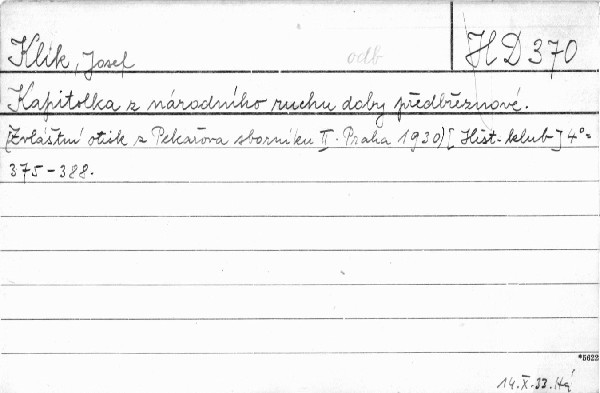 Klik, Josef odb HD 370
Kapitolka z národního ruchu doby předbřeznové.
(Zvláštní otisk z Pekařova sborníku II. Praha 1930) [Hist. klub] 4°=
375-388.
*5622
14.X.33. Há